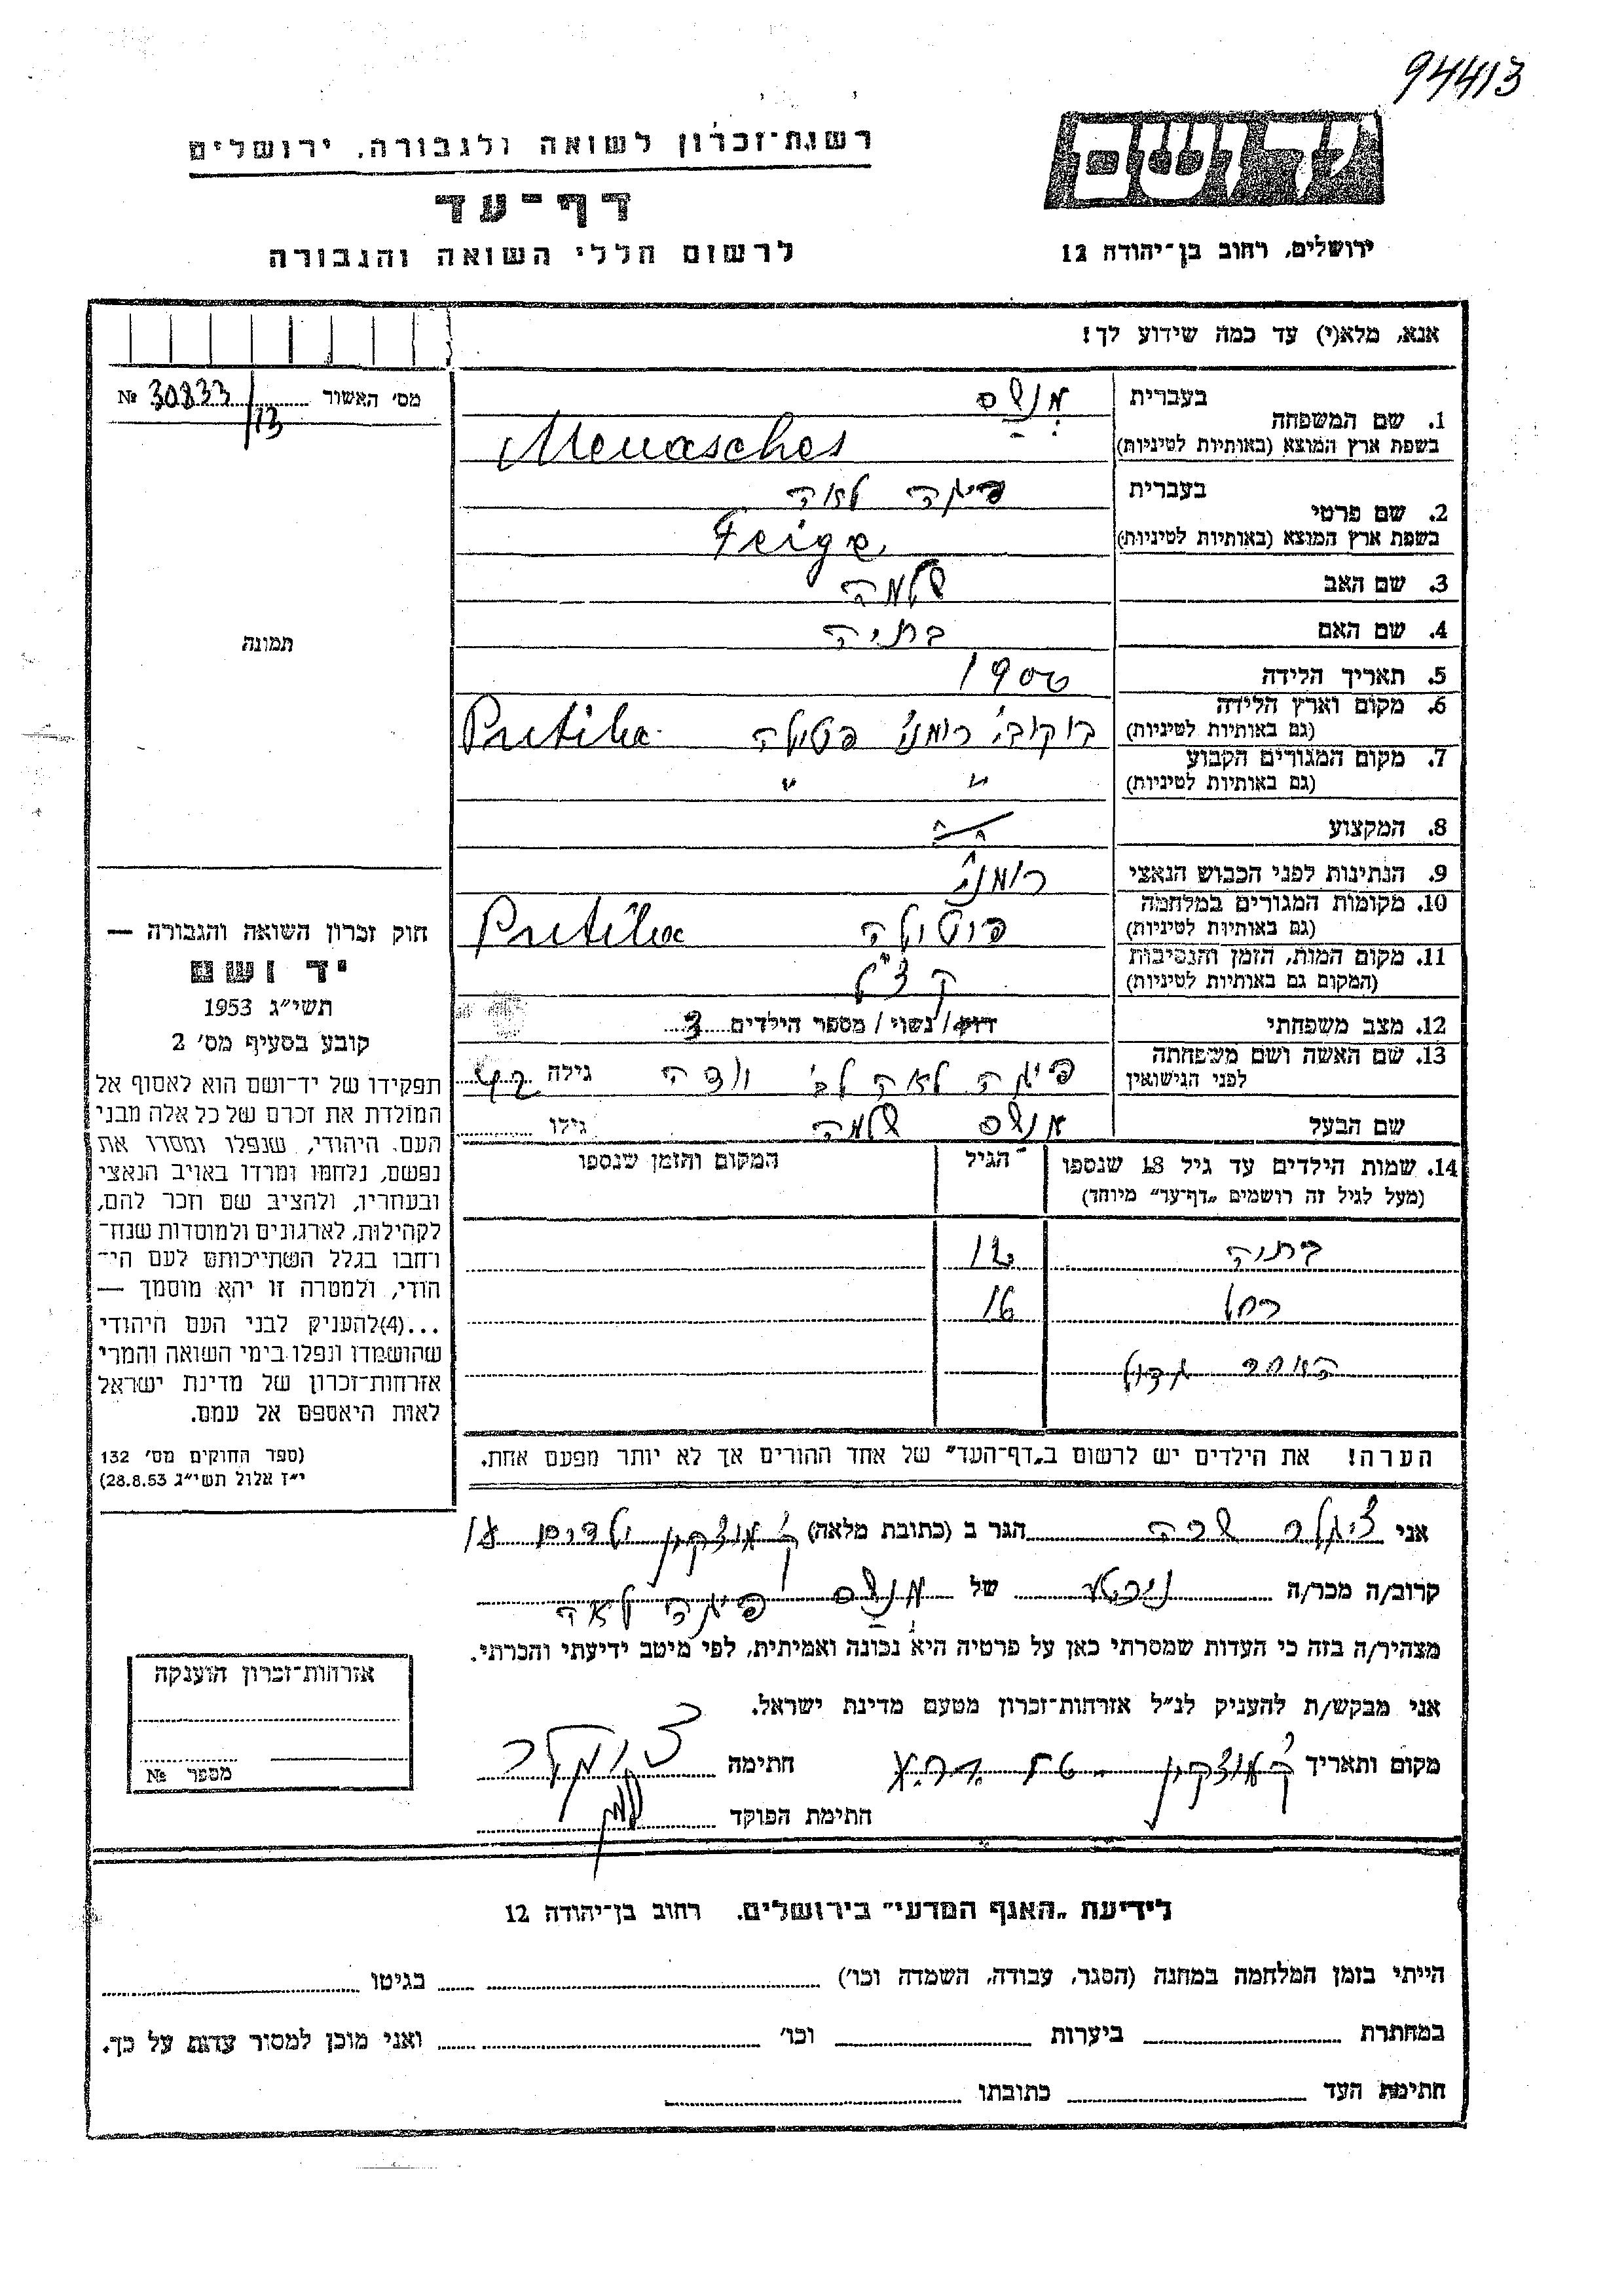 94413
רשות־זכרון לשואה ולגבורה, ירושלים
דף־עד
לרשום חללי השואה והגבורה
יד ושם
ירושלים, רחוב בן־יהודה 12
אנא, מלא(י) עד כמה שידוע לך!
מס׳ האשור 30833/13 №
תמונה
חוק זכרון השואה והגבורה —
יד ושם
תשי״ג 1953
קובע בסעיף מס׳ 2
תפקידו של יד־ושם הוא לאסוף אל
המולדת את זכרם של כל אלה מבני
העם היהודי, שנפלו ומסרו את
נפשם, נלחמו ומרדו באויב הנאצי
ובעוזריו, ולהציב שם וזכר להם,
לקהילות, לארגונים ולמוסדות שנח־
רחבו בגלל השתייכותם לעם הי־
הודי, ולמטרה זו יהא מוסמך —
...(4)להעניק לבני העם היהודי
שהושמדו ונפלו בימי השואה והמרי
אזרחות־זכרון של מדינת ישראל
לאות היאספם אל עמם.
(ספר החוקים מס׳ 132
י״ז אלול תשי״ג 28.8.53)
1. שם המשפחה בעברית מנשס
בשפת ארץ המוצא (באותיות לטיניות) Menasches
2. שם פרטי בעברית פיגה לאה
בשפת ארץ המוצא (באותיות לטיניות) Feige
3. שם האב שלמה
4. שם האם בתיה
5. תאריך הלידה 1900
6. מקום וארץ הלידה
(גם באותיות לטיניות) בוקובי׳ רומני׳ פטילה Prtila
7. מקום המגורים הקבוע
(גם באותיות לטיניות) " "
8. המקצוע
9. הנתינות לפני הכבוש הנאצי רומני׳
10. מקומות המגורים במלחמה
(גם באותיות לטיניות) פוטילה Prtila
11. מקום המות, הזמן והנסיבות
(המקום גם באותיות לטיניות)
12. מצב משפחתי רווק/ נשוי/ מספר הילדים 3
13. שם האשה ושם משפחתה
לפני הנישואין פיגה לאה לב׳ גילה
שם הבעל מנשס שלמה גילו
14. שמות הילדים עד גיל 18 שנספו הגיל המקום והזמן שנספו
(מעל לגיל זה רושמים „דף־עד״ מיוחד)
בתיה 12
רחל 16
הערה! את הילדים יש לרשום ב„דף־העד״ של אחד ההורים אך לא יותר מפעם אחת.
אני ציגלר שרה הגר ב (כתובת מלאה) ק׳ מוצקין
קרוב/ה מכר/ה של מנשס פיגה לאה
מצהיר/ה בזה כי העדות שמסרתי כאן על פרטיה היא נכונה ואמיתית, לפי מיטב ידיעתי והכרתי.
אני מבקש/ת להעניק לנ״ל אזרחות־זכרון מטעם מדינת ישראל.
מקום ותאריך ק׳ מוצקין חתימה
חתימת הפוקד
אזרחות־זכרון הוענקה
מספר №
לידיעת „האגף המדעי״ בירושלים, רחוב בן־יהודה 12
הייתי בזמן המלחמה במחנה (הסגר, עבודה, השמדה וכו׳) בגיטו
במחתרת ביערות וכו׳ ואני מוכן למסור עדות על כך.
חתימת העד כתובתו